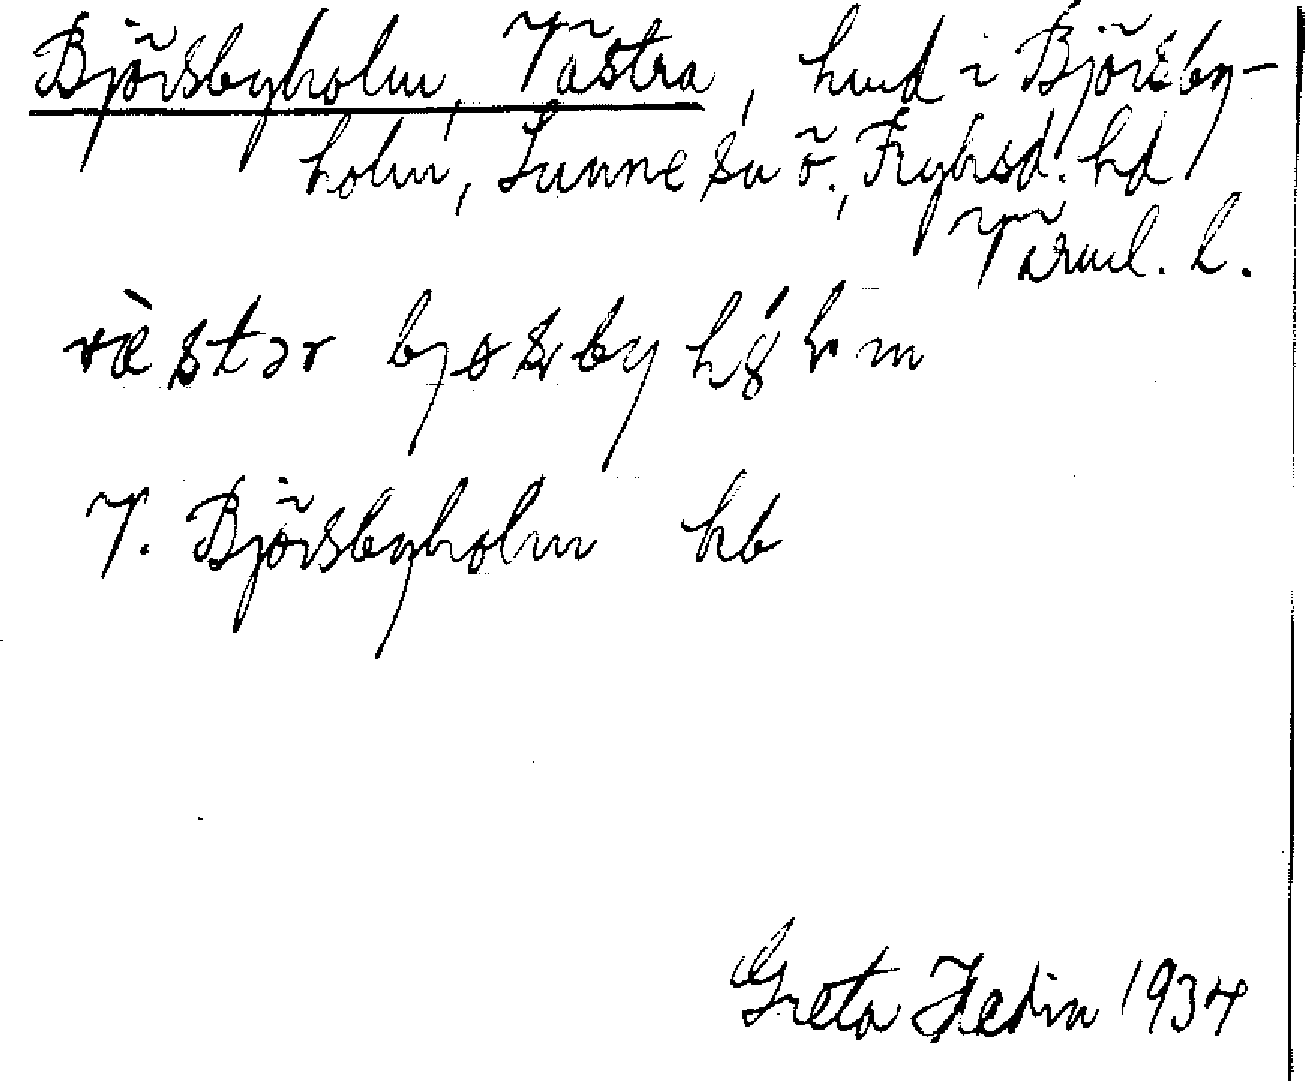 Björsbyholm, Västra, hmd i Björsby-
holm, Sunne sn ö., Fryksd. hd
Värml. l.
V. Björsbyholm hb
Greta Hedin 1934